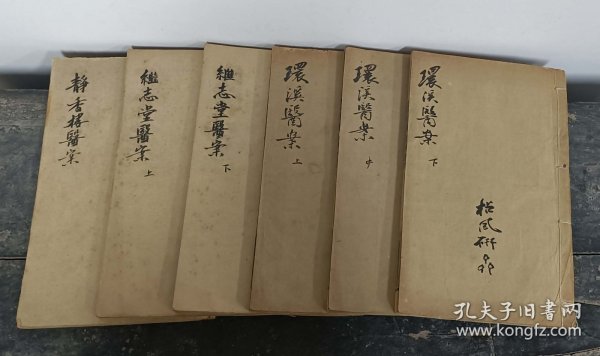 環溪醫案
下
環溪醫案
中
環溪醫案
上
繼志堂醫案
下
繼志堂醫案
上
靜香樓醫案
孔夫子旧书网
www.kongfz.com